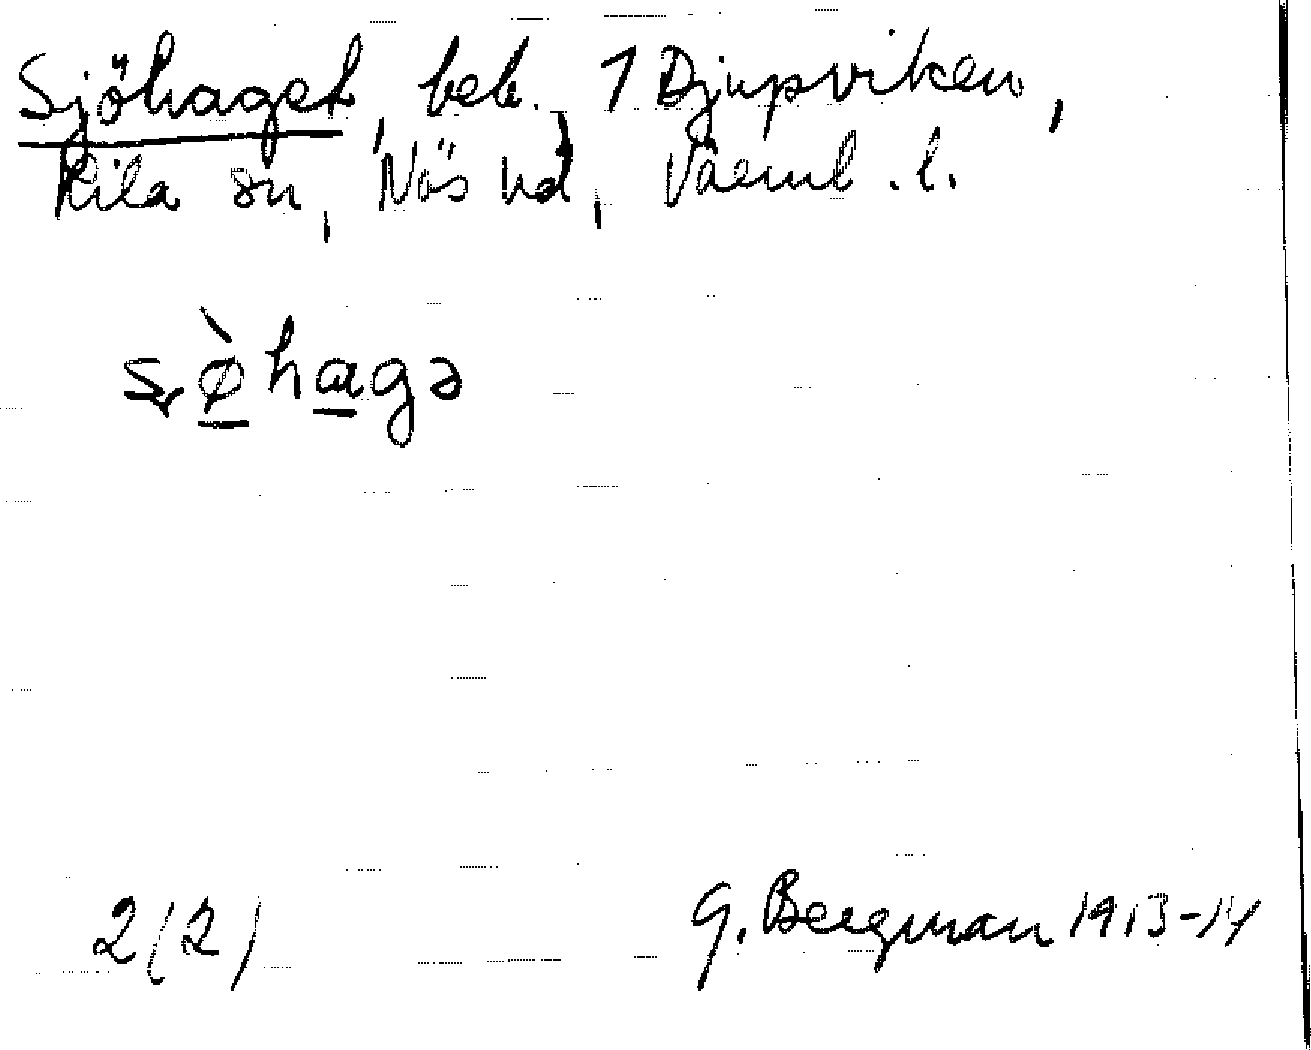 Sjöhaget, beb., 1 Djupviken,
Kila sn, Näs hd, Värml. l.
2(2)
G. Bergman 1913-14